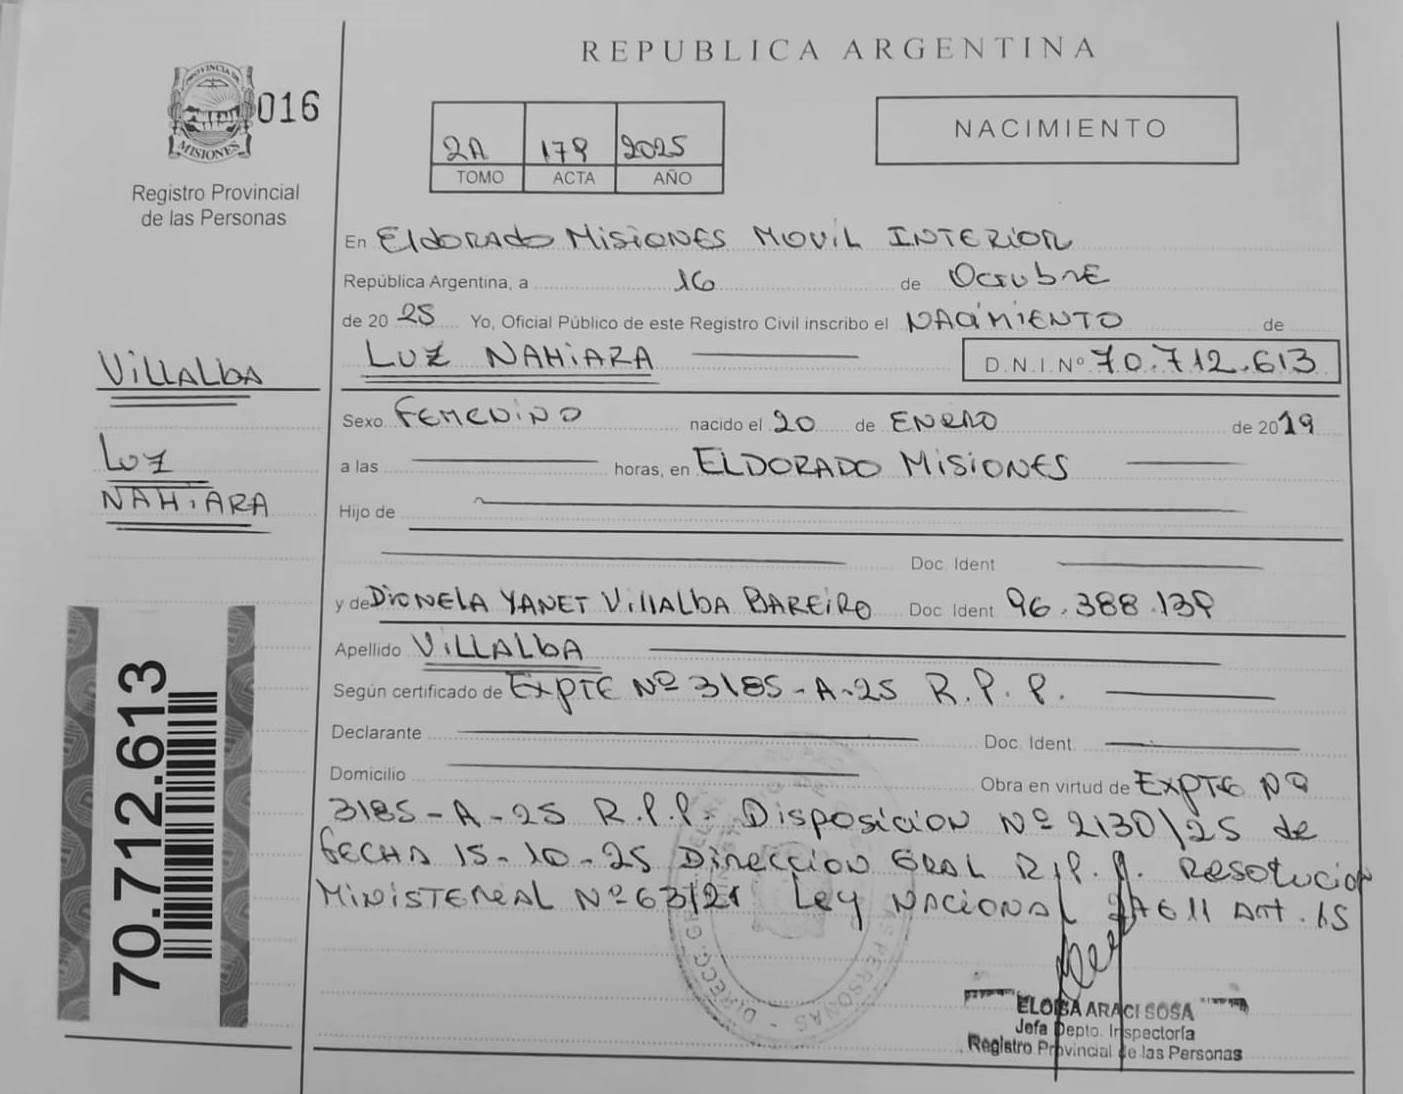 REPUBLICA ARGENTINA
PROVINCIA DE
MISIONES
016
Registro Provincial
de las Personas
2A 179 2025
TOMO ACTA AÑO
NACIMIENTO
En ELDORADO MISIONES MOVIL INTERIOR
República Argentina, a 16 de OCTUBRE
de 20 25 Yo, Oficial Público de este Registro Civil inscribo el NACIMIENTO de
LUZ NAHIARA D.N.I. Nº 70.712.613
VILLALBA
LUZ
NAHIARA
Sexo FEMENINO nacido el 20 de ENERO de 2019
a las horas, en ELDORADO MISIONES
Hijo de
Doc. Ident
y de DIONELA YANET VILLALBA BAREIRO Doc. Ident. 96.388.139
Apellido VILLALBA
Según certificado de EXPTE Nº 3185-A-25 R.P.P.
Declarante Doc. Ident.
Domicilio Obra en virtud de EXPTE Nº
3185-A-25 R.P.P. Disposicion Nº 2130/25 de
FECHA 15-10-25 Direccion GRAL R.P.P. Resolucion
MINISTERIAL Nº 63/21 Ley NACIONAL 26611 Art. 15
70.712.613
ELOISA ARACI SOSA
Jefa Depto. Inspectoría
Registro Provincial de las Personas